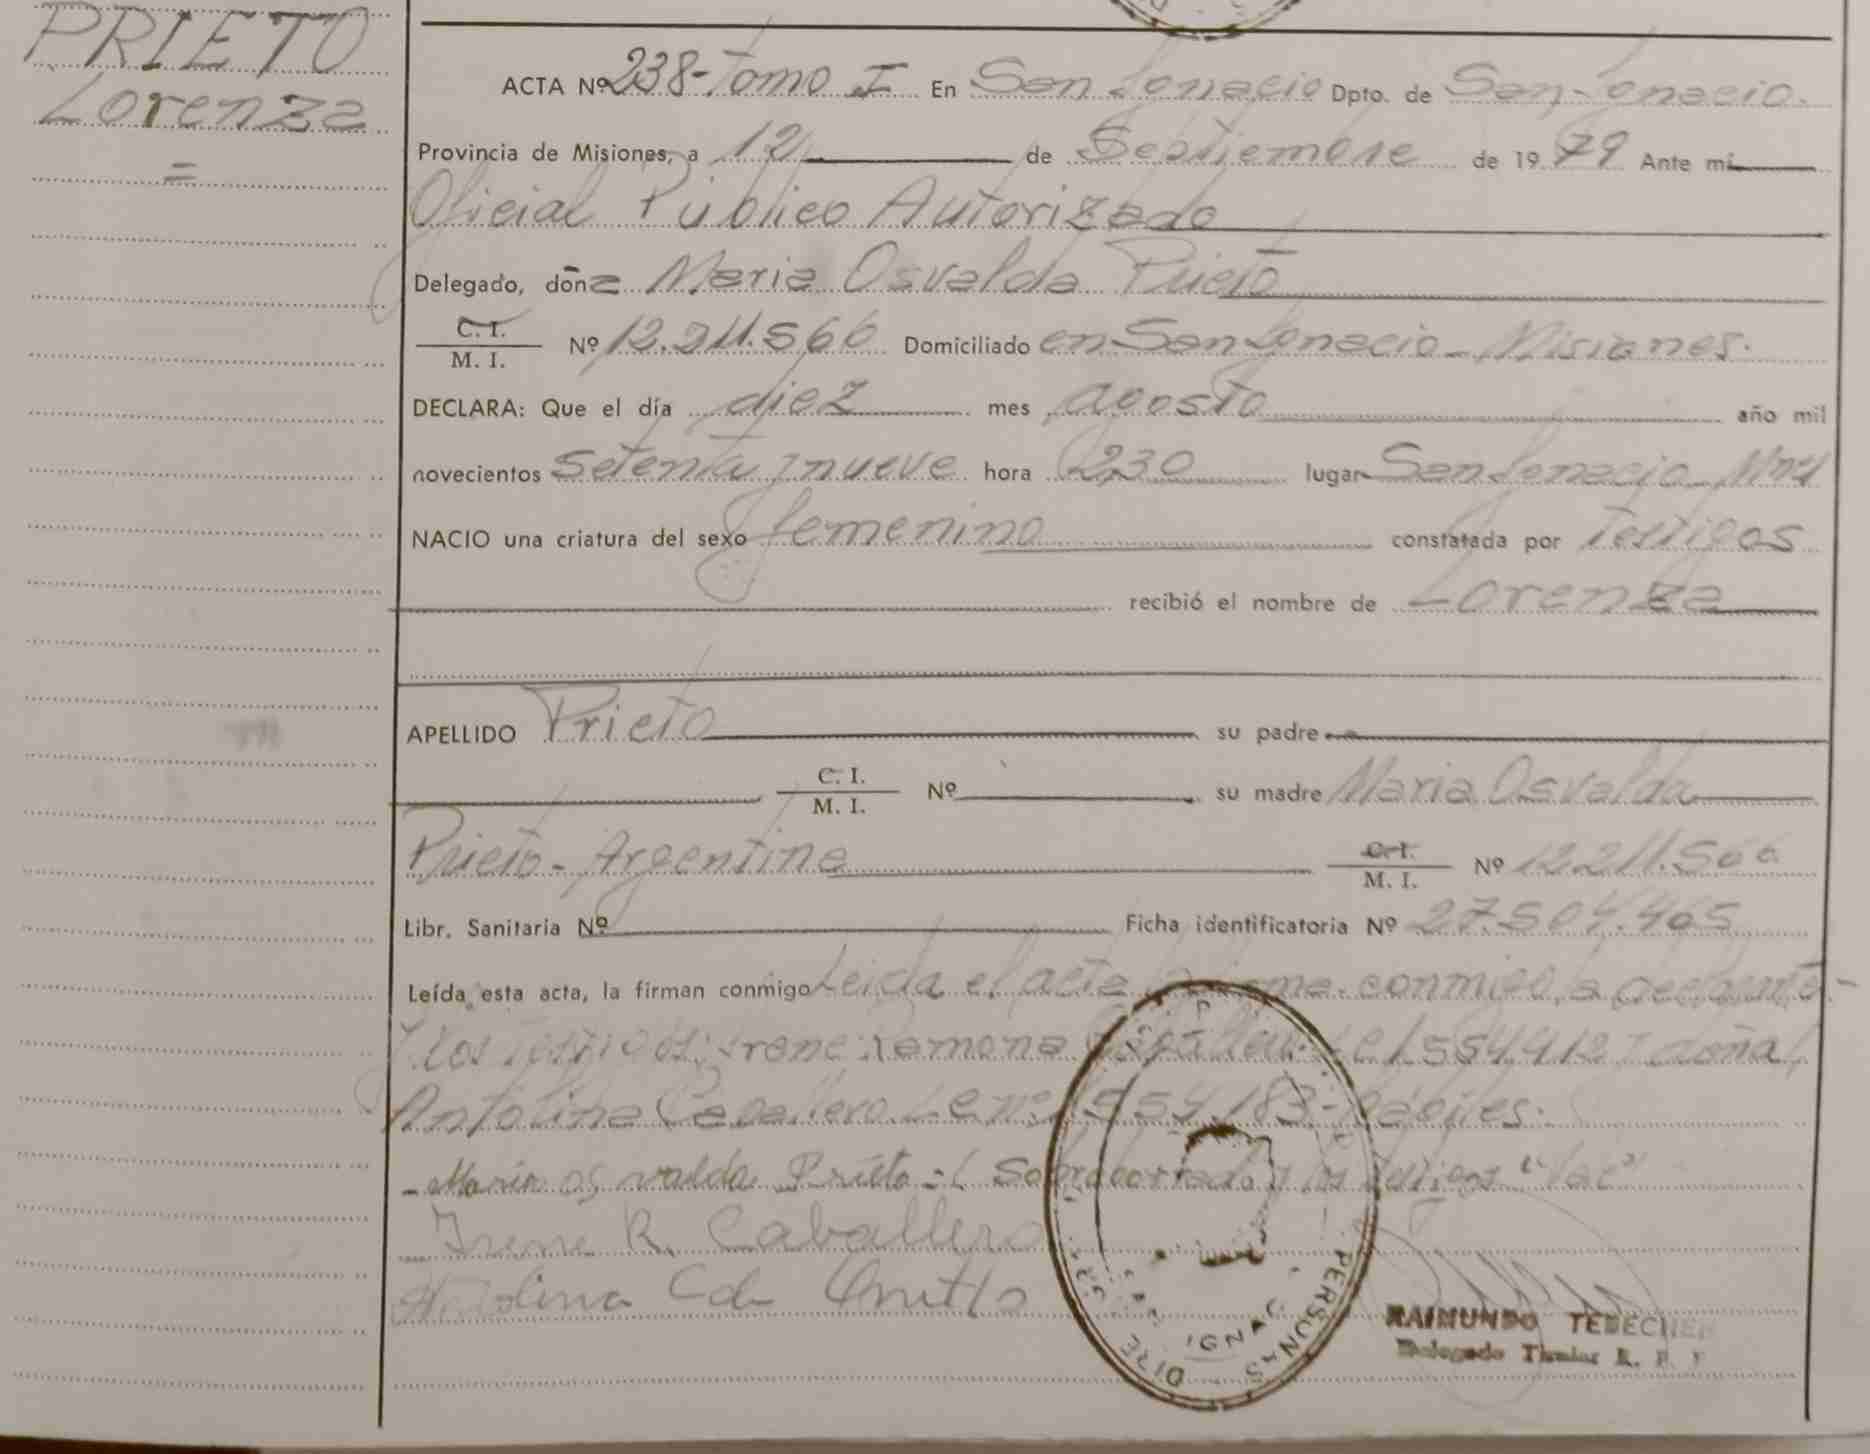 PRIETO
Lorenza
=
ACTA Nº 238-Tomo I En San Ignacio Dpto. de San-Ignacio.
Provincia de Misiones, a 12 de Septiembre de 1979 Ante mí
Oficial Público Autorizado
Delegado, doña Maria Osvalda Prieto
C. I.
M. I. Nº 12.211.566 Domiciliado en San Ignacio - Misiones.
DECLARA: Que el día diez mes agosto año mil
novecientos setenta y nueve hora 230 lugar San Ignacio Mns
NACIO una criatura del sexo femenino constatada por testigos
recibió el nombre de Lorenza
APELLIDO Prieto su padre
C. I.
M. I. Nº su madre Maria Osvalda
Prieto - Argentina C. I.
M. I. Nº 12.211.566
Libr. Sanitaria Nº Ficha identificatoria Nº 27.504.465
Leída esta acta, la firman conmigo Leida el acta la firma conmigo la declarante-
y los Testigos: Irene Ramona 1.554.912 doña
Antolina Caballero Le nº 1554.183- hábiles.
- Maria Osvalda Prieto - ( Sobreborrado y los testigos "
Irene R. Caballero
C de
DIRE PERSONAS
IGNAC
RAIMUNDO TEDECHER
Delegado Titular R. P. P